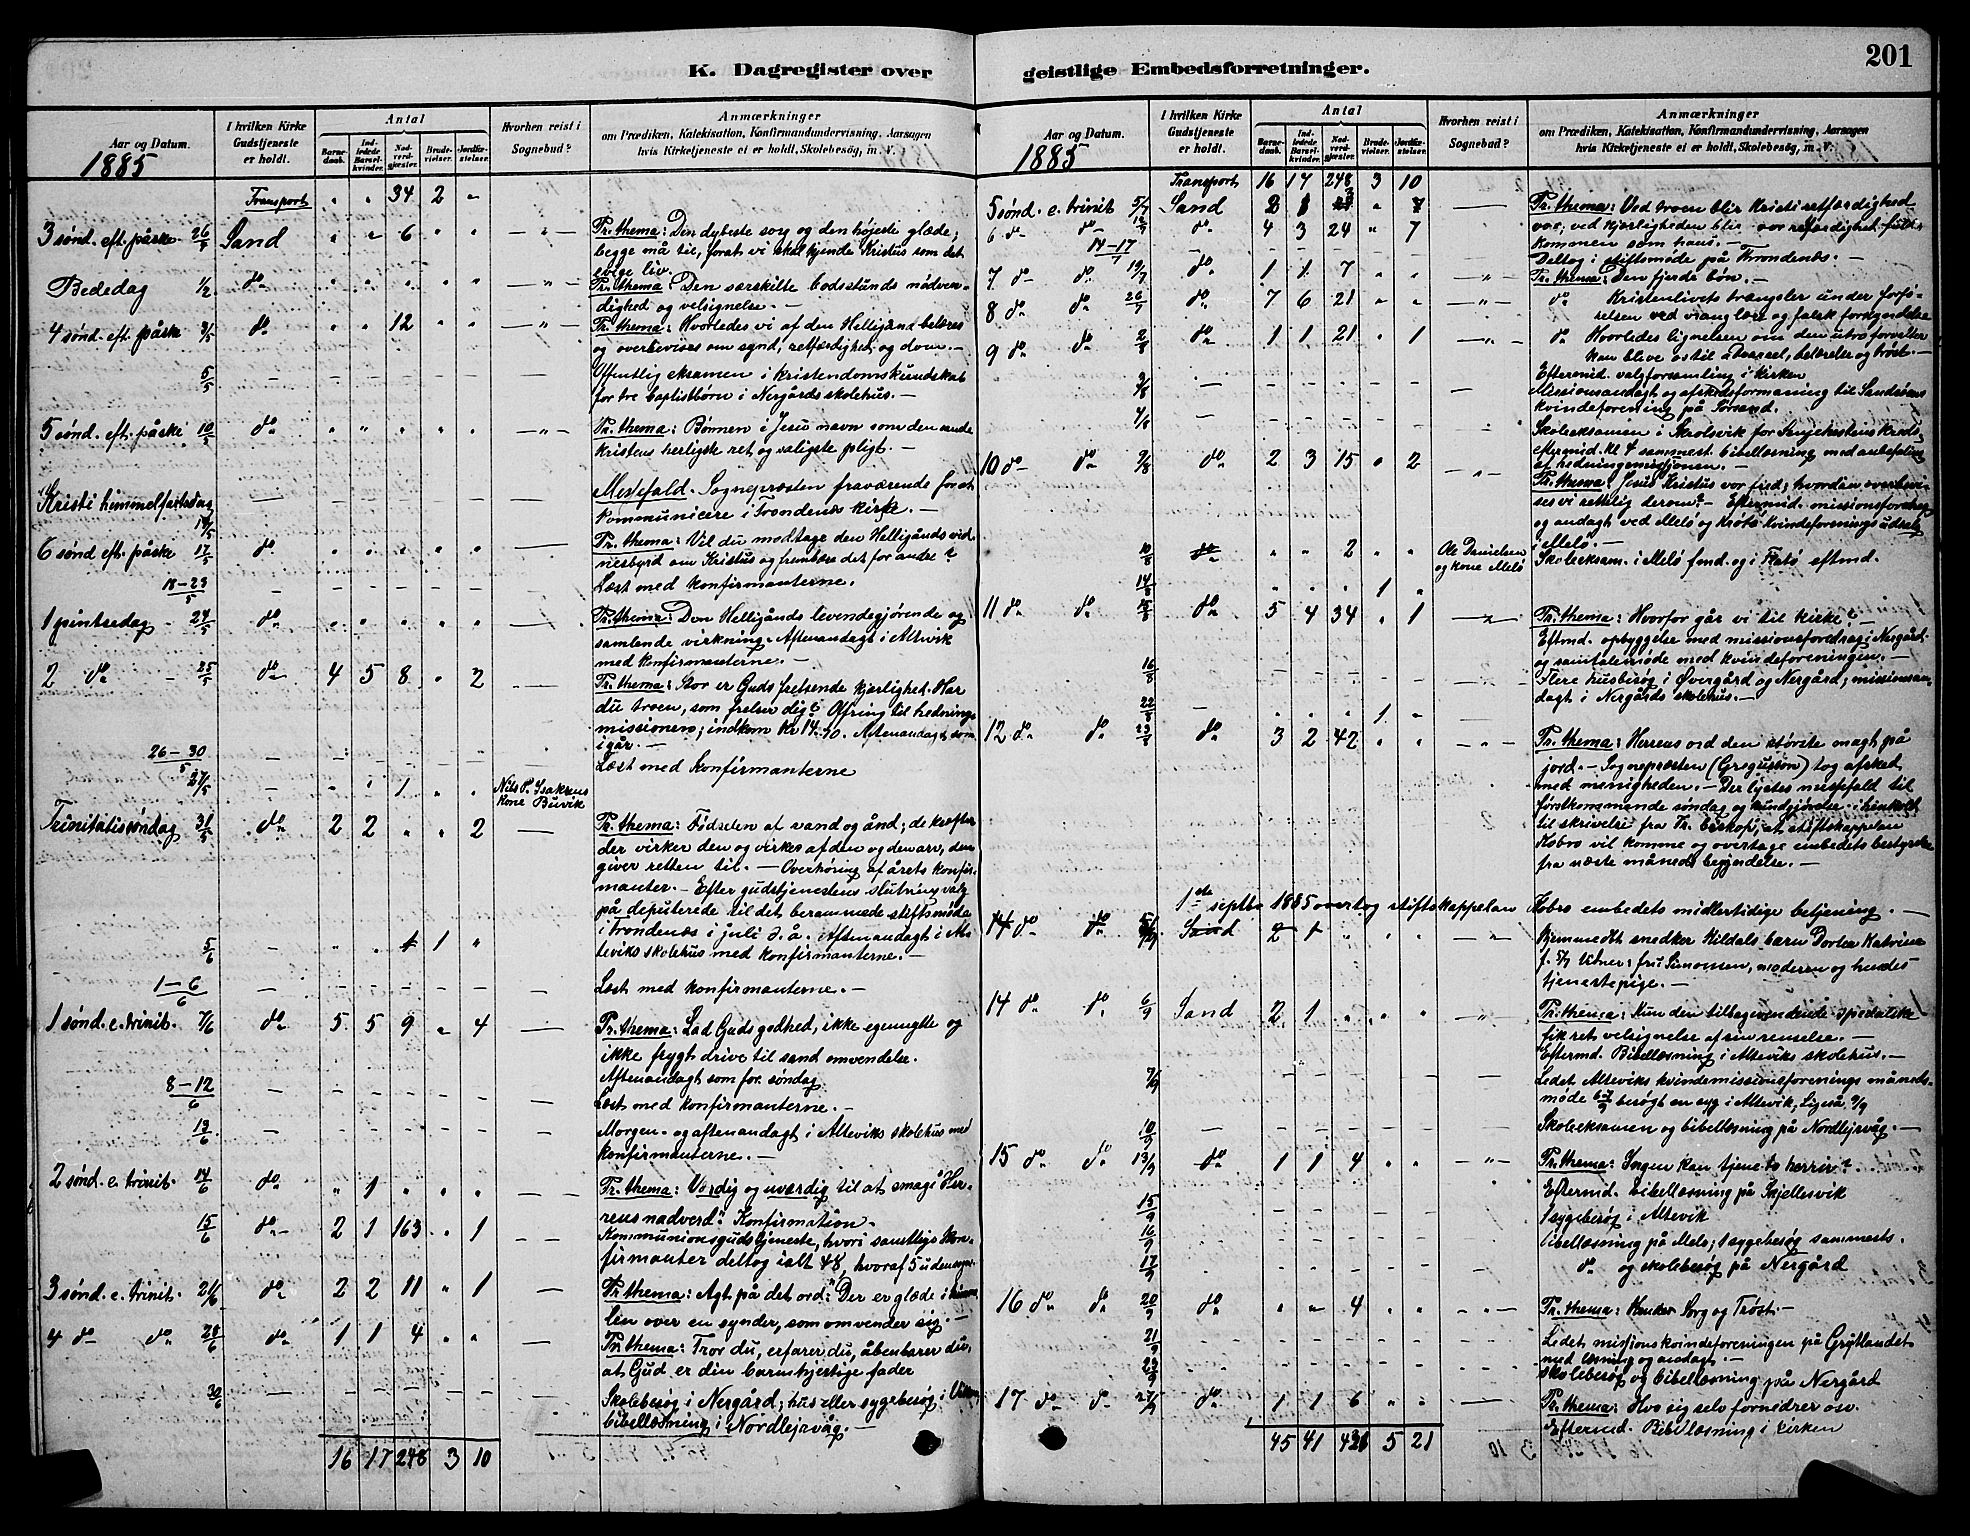 K. Dagregister over
Aar og Datum.
1885
I hvilken Kirke Gudstjeneste er holdt.
Antal
Barnedaab.
Indledede Barselkvinder.
Nadverdgjæster.
Brudevielser.
Jordfæstelser.
Hvorhen reist i Sognebud?
Anmærkninger
om Prædiken, Katekisation, Konfirmandundervisning, Aarsagen
hvis Kirketjeneste ei er holdt, Skolebesøg, m. V.
Transport " " 34 2 "
3 sønd. eft. påske 26/4 Sand " " 6 " " Pr. thema: Den dybeste sorg og den højeste glæde;
begge må til, forat vi skal kjende Kristus som det
evige liv.
Bededag 1/2 do " " " " " Pr. thema: Den særskilte bodsstunds nødven-
dighed og velsignelse. —
4 sønd. eft. påske 3/5 do " " 12 " " Pr. thema: Hvorledes vi af den Helligånd belæres
og overbevises om synd, retfærdighed og dom. —
5/5 Offentlig eksamen i kristendomskundskab
for tre baptistbørn i Nergårds skolehus. —
5 sønd. eft. påske 10/5 do " " " " " Pr. thema: Bønnen i Jesu navn som den sande
kristens herligste ret og vægtigste pligt. —
Kristi himmelfartsdag 14/5 Messefald. Sognepræsten fraværende for at
kommunicere i Trondenes kirke. —
6 sønd eft. påske 17/5 do " " " " " Pr. thema: Vil du modtage den Helligånds vid-
nesbyrd om Kristus og frembære det for andre?
18—23/5 Læst med konfirmanterne.
1 pintsedag 24/5 do " " " " " Pr. thema: Den Helligånds levendegjørende og
samlende virkning. Aftenandagt i Altevik
med konfirmanterne. —
2 do 25/5 do 4 5 8 " 2 Pr. thema: Stor er Guds frelsende kjærlighed. Har
du troen, som frelser dig? Ofring til hednings-
missionen; indkom Kr 14.50. Aftenandagt som
igår. —
26—30/5 Læst med Konfirmanterne
27/5 " " 1 " " Nils P. Isaksens
kone Buvik
Trinitatissøndag 31/5 do 2 2 " " 2 Pr. thema: Fødselen af vand og ånd; de kræfter
der virker den og virkes af den og den arv, den
giver retten til. — Overhøring af årets konfir-
manter. — Efter gudstjenestens slutning valg
på deputerede til det berammede stiftsmøde
i Trondenæs i juli d. å. Aftenandagt i Al-
teviks skolehus med konfirmanterne. —
5/6 " " 1 "
1—6/6 Læst med konfirmanterne. —
1 sønd. e. trinit. 7/6 do 5 5 9 " 4 Pr. thema: Lad Guds godhed, ikke egennytte og
ikke frygt drive til sand omvendelse.
Aftenandagt som for. søndag
8—12/6 Læst med konfirmanterne. —
13/6 Morgen- og aftenandagt i Alteviks skolehus med
konfirmanterne. —
2 sønd. e. trinit. 14/6 do " 1 " " " Pr. thema: Værdig og uværdig til at smage "Her-
rens nadverd". Konfirmation —
15/6 do 2 1 163 " 1 Kommunionsgudstjeneste, hvori samtlige kon-
firmanter deltog ialt 48, hvoraf 5 udensogns.
3 sønd. e. trinit. 21/6 do 2 2 11 " 1 Pr. thema: Agt på det ord: "Der er glæde i him-
len over en synder, som omvender sig. —
4 do do 28/6 do 1 1 4 " " Pr. thema: Tror du, erfarer du, åbenbarer du,
at Gud er din barmhjertige fader
30/6 Skolebesøg i Nergård; hus eller sygebesøg i
bibellæsning i Nordlejrvåg. —
16 17 248 3 10
geistlige Embedsforretninger.
201
Aar og Datum.
1885
I hvilken Kirke Gudstjeneste er holdt.
Antal
Barnedaab.
Indledede Barselkvinder.
Nadverdgjæster.
Brudevielser.
Jordfæstelser.
Hvorhen reist i Sognebud?
Anmærkninger
om Prædiken, Katekisation, Konfirmandundervisning, Aarsagen
hvis Kirketjeneste ei er holdt, Skolebesøg, m. V.
Transport 16 17 248 3 10
5 sønd. e. trinit 5/7 Sand 2 1 " 7 Pr. thema: Ved troen blir Kristi retfærdighed
vor; ved kjærligheden blir vor retfærdighed fuld-
kommen som hans. —
6 do do 12/7 do 4 3 24 " 7
14—17/7 Deltog i stiftsmøde på Trondenæs. —
7 do do 19/7 do 1 1 7 " " Pr. thema: Den fjerde bøn. —
8 do do 26/7 do 7 6 21 " " do Kristenlivets trængsler under forfø-
relsen ved vranglære og falsk forkyndelse
9 do do 2/8 do 1 1 21 " 1 do Hvorledes lignelsen om den utro forvalter
kan blive os til advarsel, belærelse og trøst. —
Eftermid. valgforsamling i kirken
Missionsandagt og afskedsformaning til Sandsøens
kvindeforening på Forsand.
Skoleeksamen i Skrolsvik for Senjehestens kreds,
eftermid. Kl 4 sammest. bibellæsning med anbefaling
af hedningemissionen. —
10 do do 9/8 do 2 3 15 " 2 Pr. thema: Jesus Kristus vor fred; hvordan overbevi-
ses vi rettelig derom? — Eftermid. missionsforedrag
og andagt ved Melø og Krøtø kvindeforenings udsalg
i Melø. —
10/8 do " " 2 " " Ole Danielsen
og kone Melø Skoleeksam. i Melø fmd. og i Flatø eftmd.
14/8 " " " 1 "
11 do do do 5 4 34 " 1 Pr. thema: Hvorfor går vi til kirke? —
Eftmd. opbyggelse med missionsforedrag i Nergård
og samtalemøde med kvindeforeningen. —
16/8 Flere husbesøg i Øvergård og Nergård; missionsan-
dagt i Nergårds skolehus. —
22/8 " 1 "
12 do do 23/8 do 3 2 42 " " Pr. thema: Herrens ord den største magt på
jord. — Sognepræsten (Gregusson) tog afsked
med menigheden. — Der lystes messefald til
førstkommende søndag og kundgjørelse i henhold
til skrivelse fra Tr. biskop, at stiftskappelan
Kobro vil komme og overtage embedets bestyrelse
fra næste måneds begyndelse. —
1ste septbr 1885 overtog stiftskappelan Kobro embedets midlertidige betjening. —
14 do do Sand 2 1 " " " Hjemmedøbt snedker Kildals barn Dortea Katrine
f. 5/9 Vidner: fru Simonsen, moderen og hendes
tjenestepige. —
14 do do 6/9 Sand 2 1 " " " Pr. thema: Kun den tilbagevendende spedalske
fik ret velsignelse af sin renselse. —
Eftermd. Bibellæsning i Alteviks skolehus. —
7/9 Ledet Alteviks kvindemissionsforenings måneds-
møde besøgt en syg i Altevik, Ligeså 9/9
10/9 Skoleeksamen og bibellæsning på Nordlejrvåg. —
15 do do 13/9 do 1 1 4 " " Pr. thema: Ingen kan tjene to herrer?
Eftermd. Bibellæsning på Skjellesvik
15/9 1 sygebesøg i Altevik
16/9 Bibellæsning på Melø; 1 sygebesøg sammests.
17/9 do og skolebesøg på Nergård
16 do do 20/9 do " " 4 " " Pr. thema: Sorg og Trøst. —
21/9 Ledet missionskvindeforeningen på Grytlandet
med læsning og andagt. —
23/9 skolebesøg og bibellæsning på Nergård
17 do do 27/9 do 1 1 6 " " Pr. thema: Hvo sig selv fornedrer osv.
Eftermd. Bibellæsning i kirken
45 41 5 21